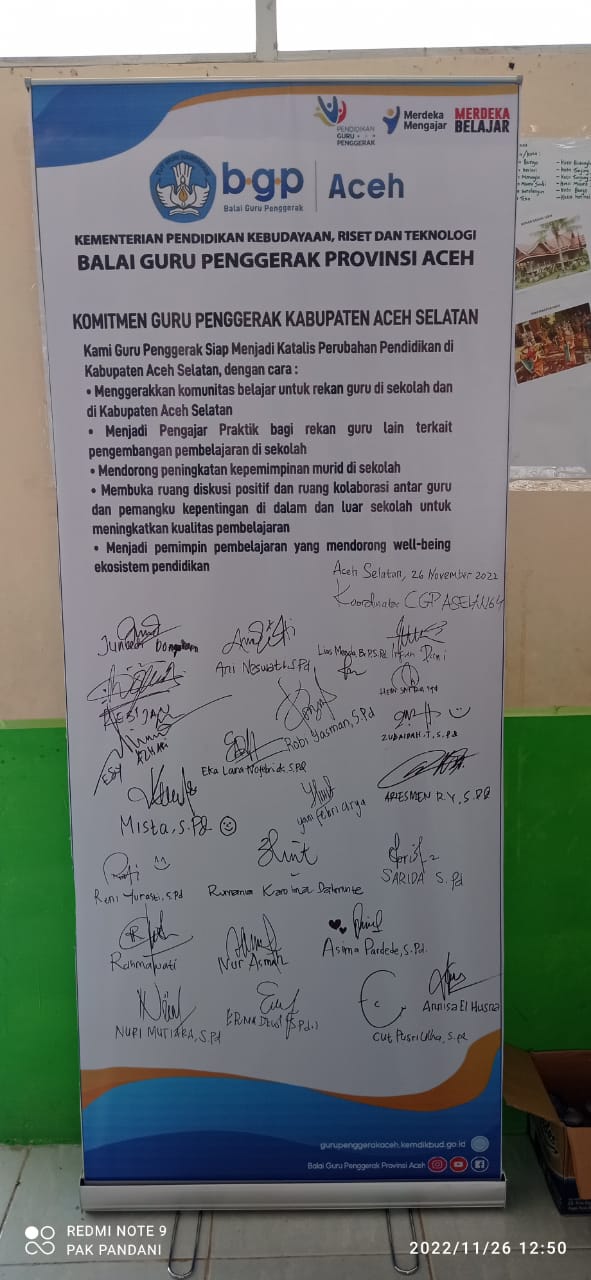 PENDIDIKAN
GURU
PENGGERAK
Merdeka
Mengajar
MERDEKA
BELAJAR
bgp
Balai Guru Penggerak
Aceh
KEMENTERIAN PENDIDIKAN KEBUDAYAAN, RISET DAN TEKNOLOGI
BALAI GURU PENGGERAK PROVINSI ACEH
KOMITMEN GURU PENGGERAK KABUPATEN ACEH SELATAN
Kami Guru Penggerak Siap Menjadi Katalis Perubahan Pendidikan di
Kabupaten Aceh Selatan, dengan cara :
• Menggerakkan komunitas belajar untuk rekan guru di sekolah dan
di Kabupaten Aceh Selatan
• Menjadi Pengajar Praktik bagi rekan guru lain terkait
pengembangan pembelajaran di sekolah
• Mendorong peningkatan kepemimpinan murid di sekolah
• Membuka ruang diskusi positif dan ruang kolaborasi antar guru
dan pemangku kepentingan di dalam dan luar sekolah untuk
meningkatkan kualitas pembelajaran
• Menjadi pemimpin pembelajaran yang mendorong well-being
ekosistem pendidikan
Aceh Selatan, 26 November 2022
Koordinator CGP
Robi Yasman, S.Pd
ZUBAIDAH.T, S.Pd
Mista, S.Pd
yani febri arya
ARIESMEN R.Y, S.Pd
Reni Yurasti, S.Pd
SARIDA S.Pd
Rahmawati
Nur Asmah
Asima Pardede, S.Pd.
NURI MUTIARA, S.Pd
ERNA DEWI
Annisa El Husna
gurupenggerakaceh.kemdikbud.go.id
Balai Guru Penggerak Provinsi Aceh
REDMI NOTE 9
PAK PANDANI
2022/11/26 12:50